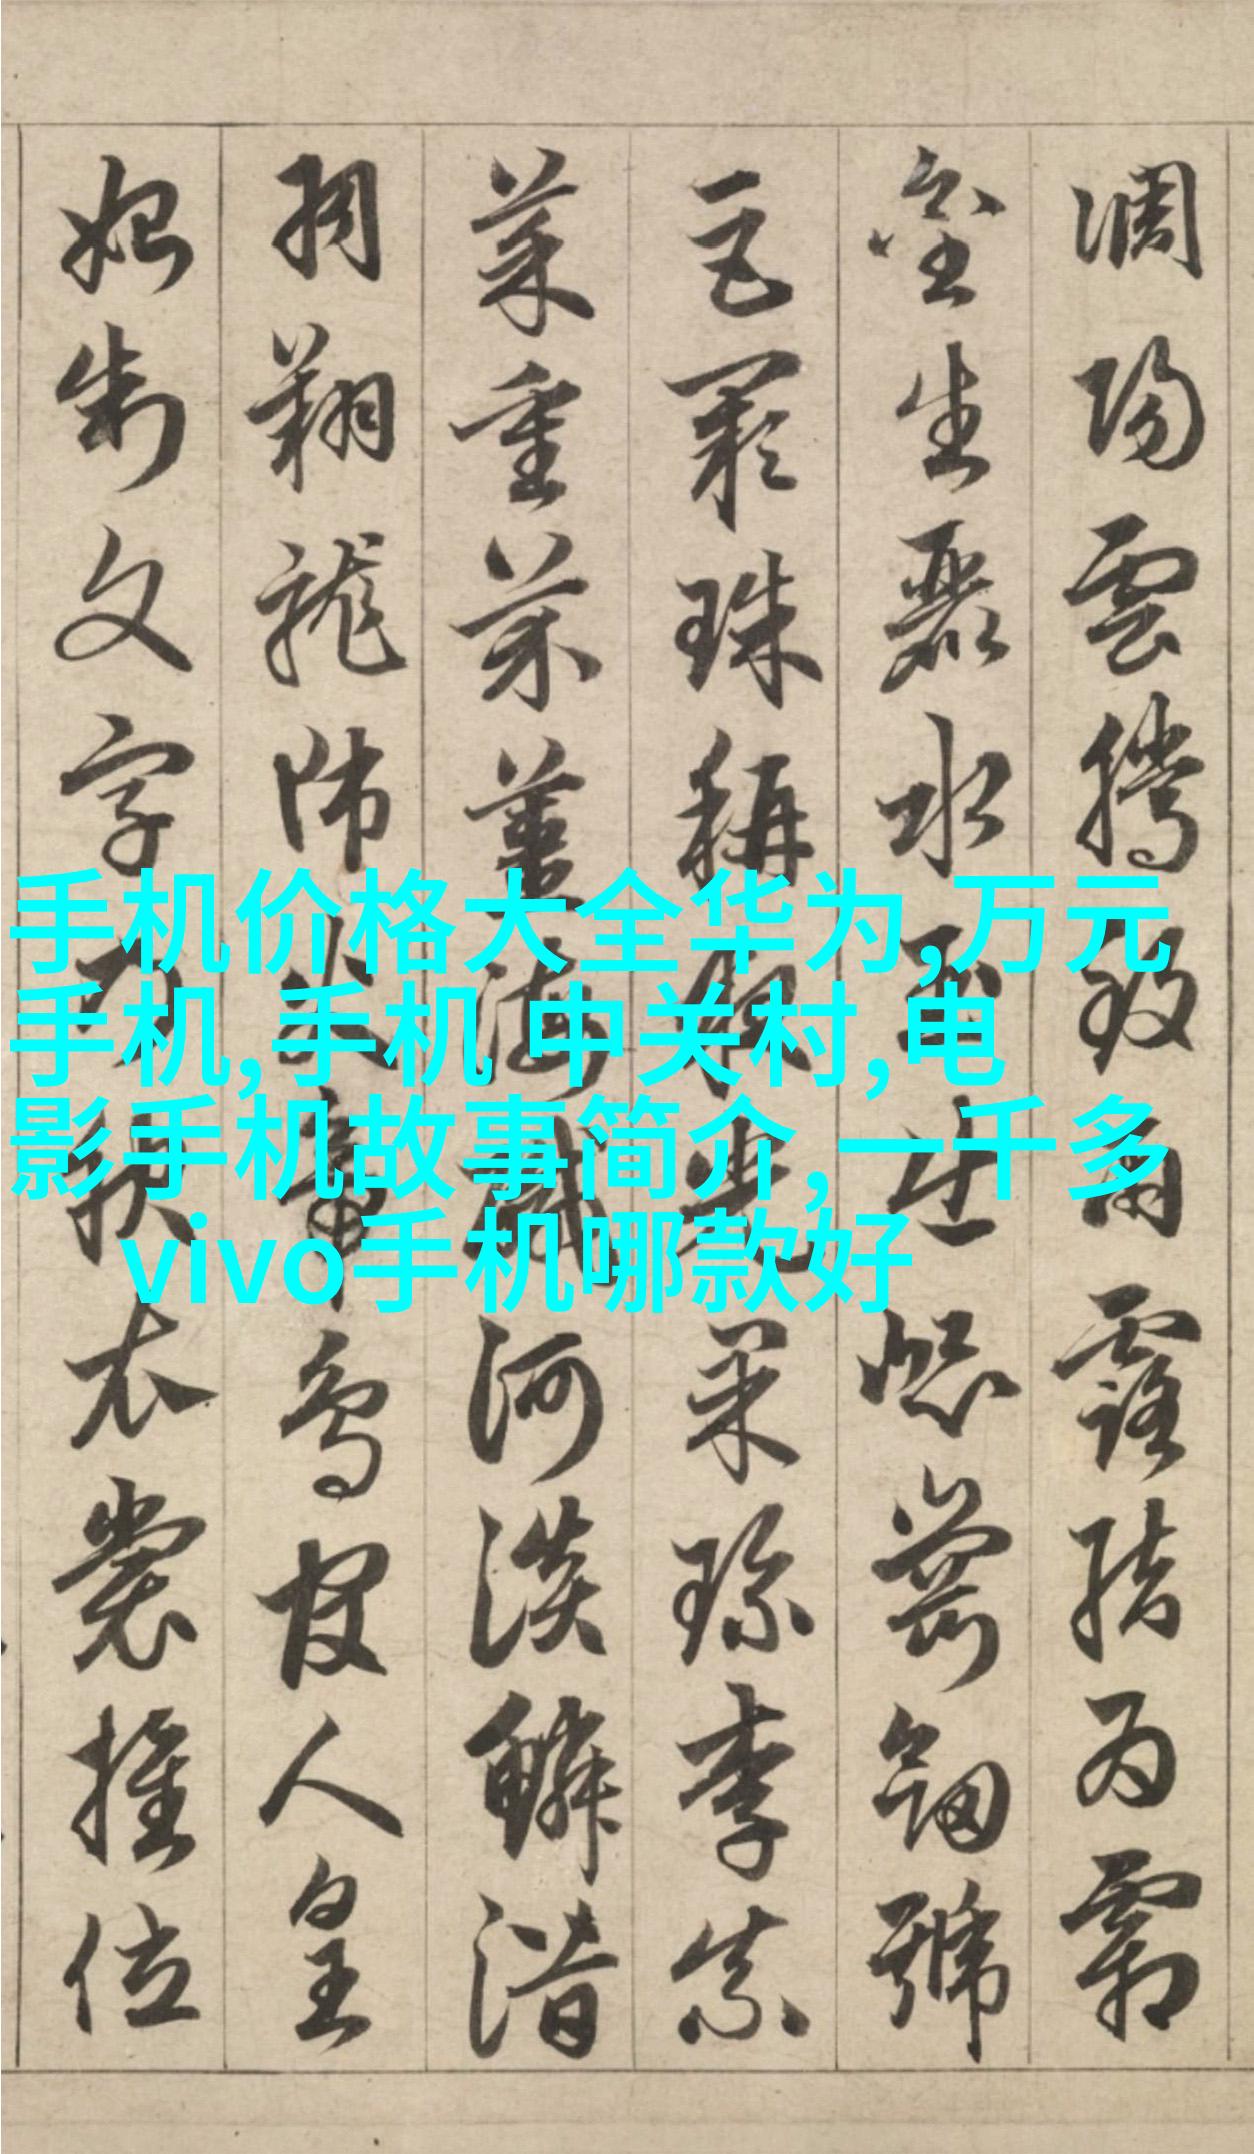 調陽雲騰致雨露結為霜
金生麗水玉出崑崗劍號
巨闕珠稱夜光果珍李柰
菜重芥薑海鹹河淡鱗潛
羽翔龍師火帝鳥官人皇
始制文字乃服衣裳推位
手机价格大全华为,万元
手机,手机 中关村,电
影手机故事简介,一千多
vivo手机哪款好